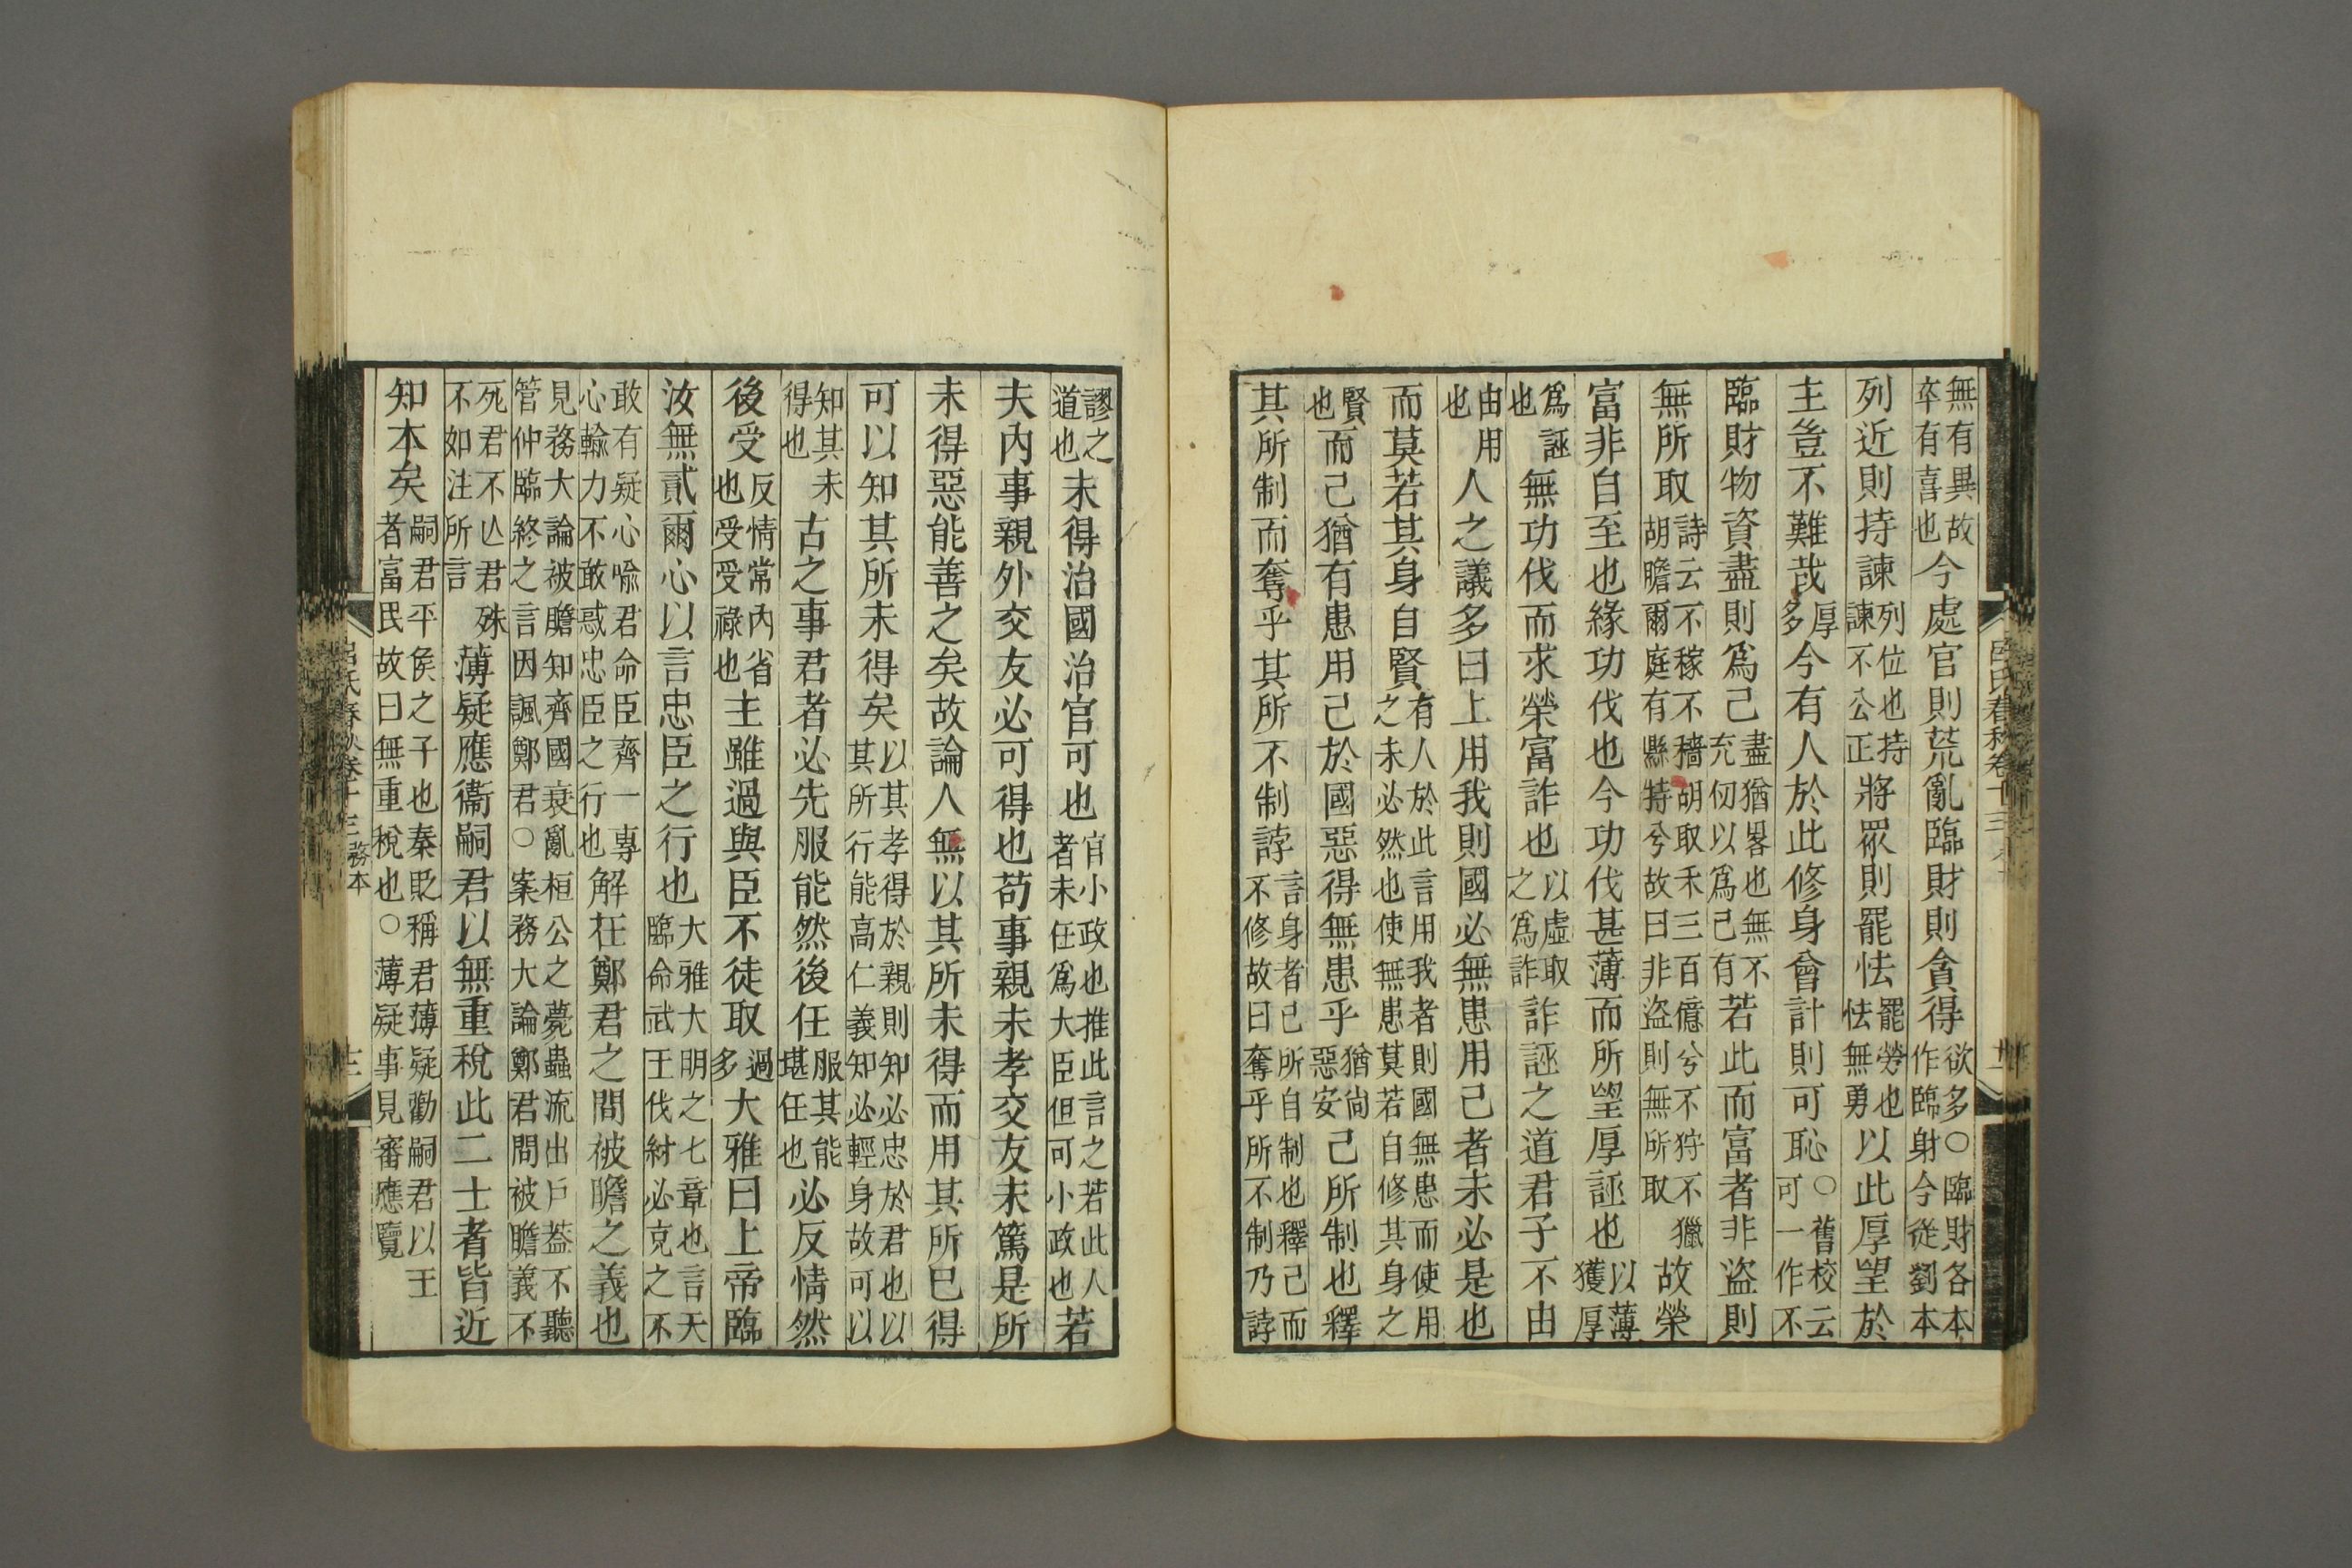 無有異故卒有喜也今處官則荒亂臨財則貪得欲多○臨財各本作臨身今從劉本
列近則持諫列位也持諫不公正將眾則罷怯罷勞也怯無勇以此厚望於
主豈不難哉厚多今有人於此修身會計則可恥○舊校云可一作不
臨財物資盡則爲己盡猶畧也無不充仞以爲己有若此而富者非盜則
無所取詩云不稼不穡胡取禾三百億兮不狩不獵胡瞻爾庭有縣特兮故曰非盜則無所取故榮
富非自至也緣功伐也今功伐甚薄而所望厚誣也以薄獲厚
爲誣也無功伐而求榮富詐也以虛取之爲詐詐誣之道君子不由
由用也人之議多曰上用我則國必無患用己者未必是也
而莫若其身自賢有人於此言用我者則國無患而使用之未必然也使無患莫若自修其身之
賢也而己猶有患用己於國惡得無患乎猶尙惡安己所制也釋
其所制而奪乎其所不制誖言身者己所自制也釋己而不修故曰奪乎所不制乃誖
謬之道也未得治國治官可也官小政也推此言之若此人者未任爲大臣但可小政也若
夫內事親外交友必可得也苟事親未孝交友未篤是所
未得惡能善之矣故論人無以其所未得而用其所已得
可以知其所未得矣以其孝得於親則知必忠於君也以其所行能高仁義知必輕身故可以
知其未得也古之事君者必先服能然後任服其能堪任也必反情然
後受反情常內省也受受祿也主雖過與臣不徒取過多大雅曰上帝臨
汝無貳爾心以言忠臣之行也大雅大明之七章也言天臨命武王伐紂必克之不
敢有疑心喻君命臣齊一專心輸力不敢惑忠臣之行也解在鄭君之問被瞻之義也
見務大論被瞻知齊國衰亂桓公之薨蟲流出戶葢不聽管仲臨終之言因諷鄭君○案務大論鄭君問被瞻義不
死君不亾君殊不如注所言薄疑應衞嗣君以無重稅此二士者皆近
知本矣嗣君平侯之子也秦貶稱君薄疑勸嗣君以王者富民故曰無重稅也○薄疑事見審應覽
呂氏春秋卷十三 務本